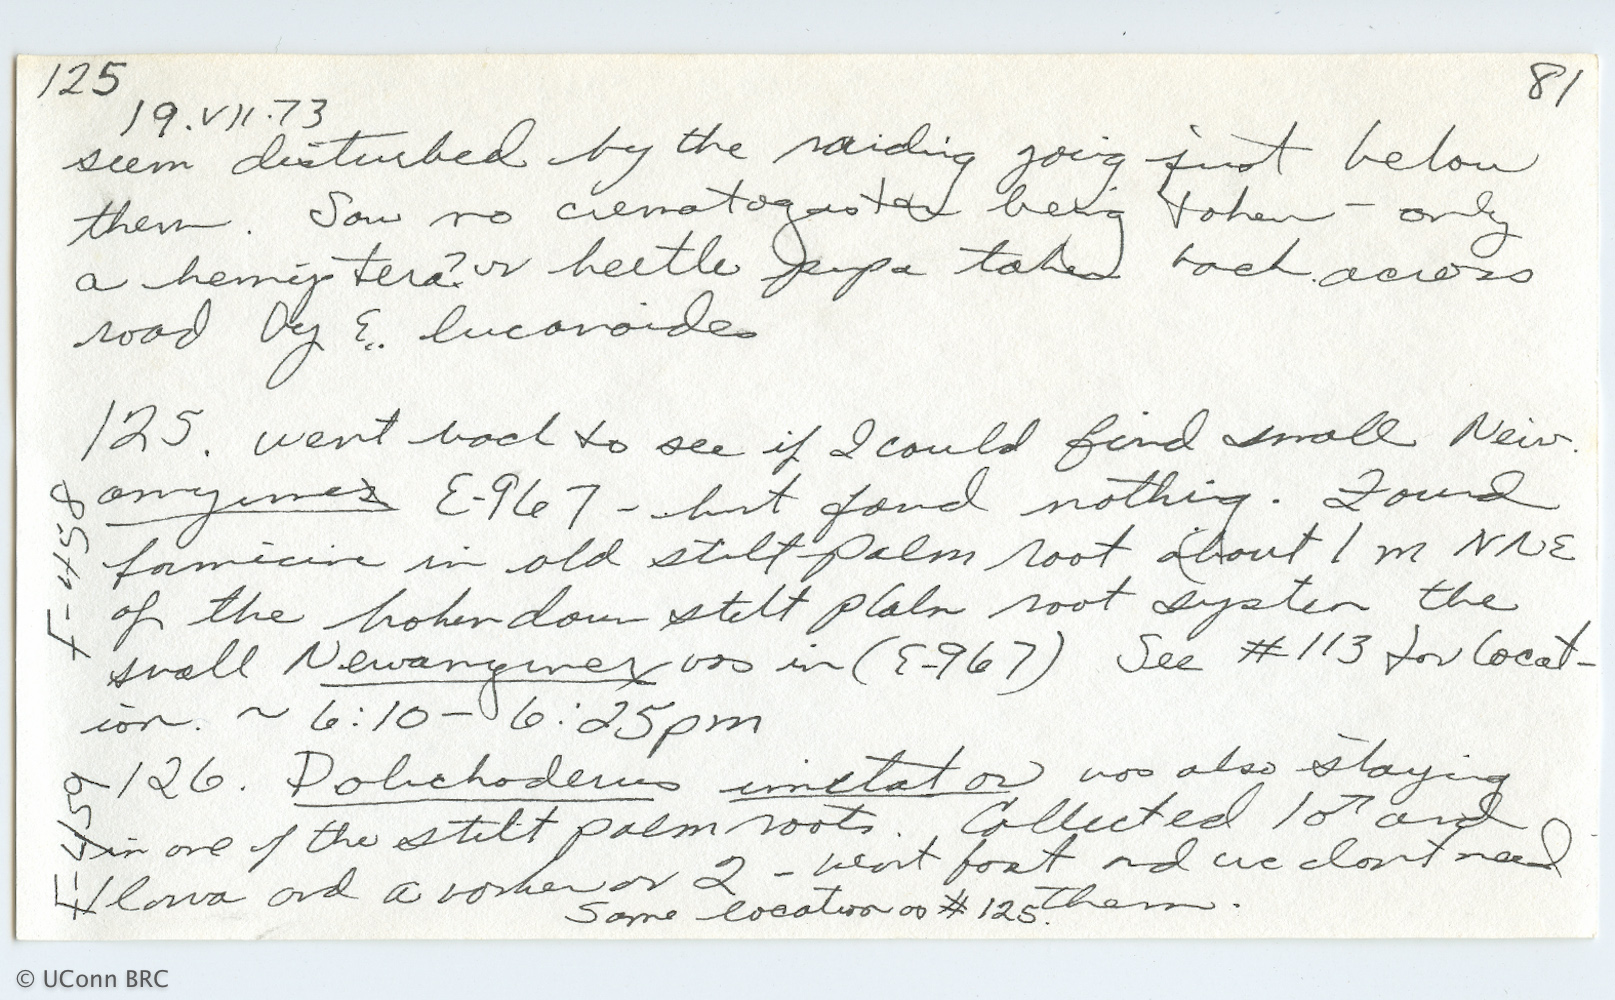 125
81
19.VII.73
seem disturbed by the raiding going just below
them. Saw no crematogaster being taken - only
a hemiptera? or beetle pupa taken back across
road by E. lucanoides
125. went back to see if I could find small Neiv.
E-967 - but found nothing. Found
F-458
formicine in old stilt palm root about 1 m NNE
of the broken down stilt palm root system the
small was in (E-967) See #113 for locat-
ion. ~ 6:10 - 6:25pm
126. Dolichoderus imitator was also staying
F-459
in one of the stilt palm roots. Collected 1♂ and
1 larva and a worker or 2 - went fast and we dont need
them.
Same location as #125.
© UConn BRC